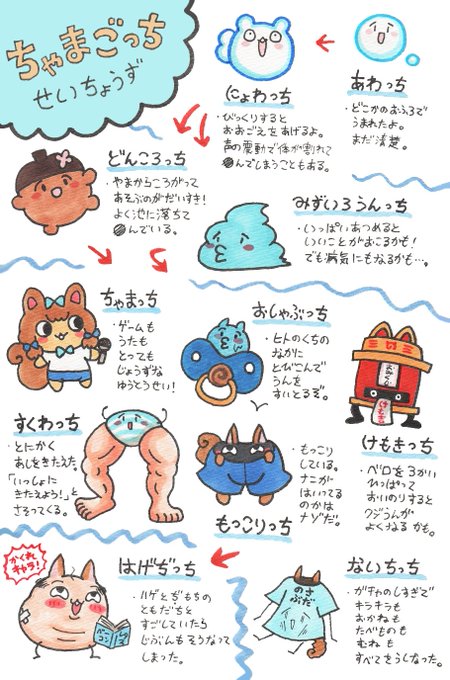 ちゃまごっち
せいちょうず
にょわっち
・びっくりすると
おおごえをあげるよ。
声の震動で体が割れて
●んでしまうこともある。
あわっち
・どこかのおふろで
うまれたよ。
まだ清楚。
どんころっち
・やまからころがって
あそぶのがだいすき!
よく池に落ちて
●んでいる。
みずいろうんっち
・いっぱいあつめると
いいことがおこるかも!
でも病気にもなるかも…。
ちゃまっち
・ゲームも
うたも
とっても
じょうずな
ゆうとうせい!
おしゃぶっち
・ヒトのくちの
なかに
とびこんで
うんを
すいとるぞ。
おみくじ
けもき
けもきっち
・ベロを3かい
ひっぱって
おいのりすると
クジうんが
よくなるかも。
すくわっち
・とにかく
あしをきたえた。
「いっしょに
きたえよう!」と
さそってくる。
もっこりっち
・もっこり
している。
ナニが
はいってる
のかは
ナゾだ。
かくれ
キャラ!
はげぢっち
・ハゲとぢもちの
ともだちと
すごしていたら
じぶんもそうなって
しまった。
ないちっち
・ガチャのしすぎで
キラキラも
おかねも
たべものも
むねも
すべてをうしなった。
のさ
ぶだ